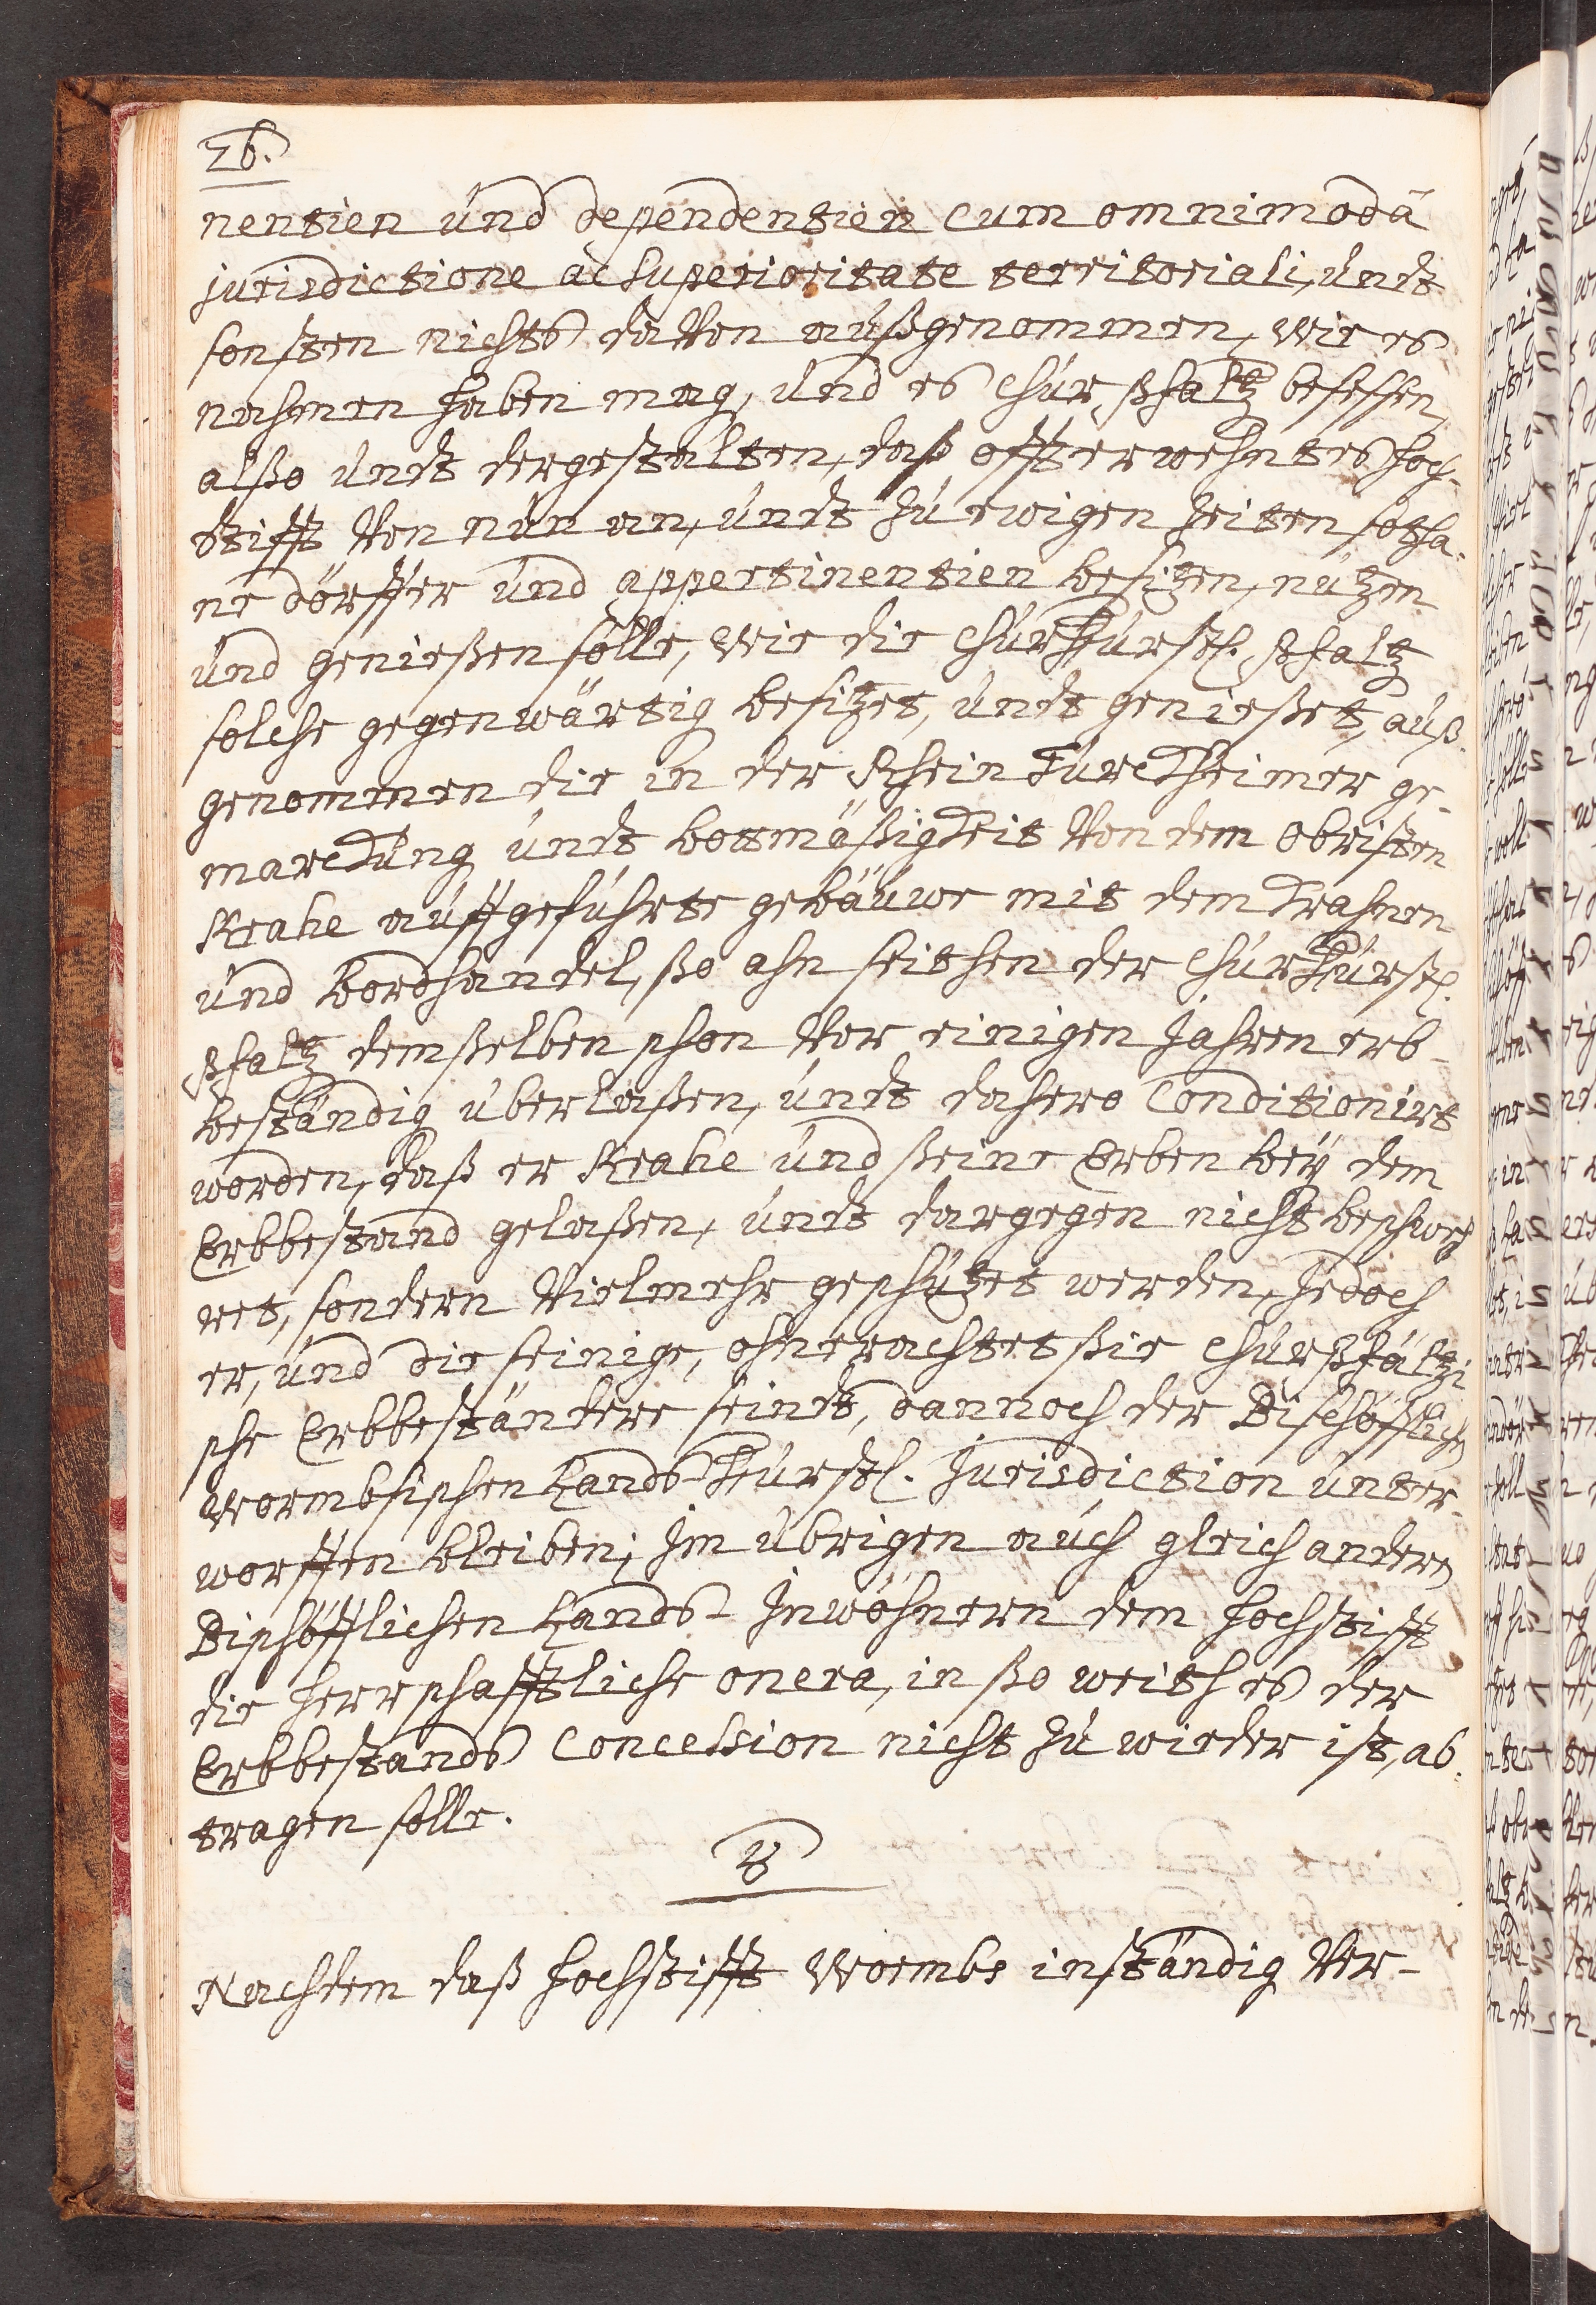 26.
nentien und dependentien cum omnimodâ
jurisdictione ac superioritate territoriali, undt
sonsten nichts davon außgenommen, wie es
nahmen haben mag, und es Chur Pfaltz besessen,
alßo undt dergestalten, daß offterwehntes Hoch-
stifft von nun an, undt zu ewigen zeiten sotha-
ne dörffer und appertinentien besizen, nuzen
und genießen solle, wie die Churfürstl. Pfaltz
solche gegenwärtig besizet, undt genießet, auß-
genommen die in der Rhein Türckheimer ge-
marckung undt bottmäßigkeit von dem Obristen
Keahe auffgeführte gebäuwe mit dem Krahnen
und bordhandel, ßo ahn seithen der Churfürstl.
Pfaltz demßelben schon vor einigen Jahren erb-
beständig überlaßen, undt dahero conditionirt
worden, daß er Keahe und ßeine Erben bey dem
Erbbestand gelaßen, undt dargegen nicht beschweh-
ret, sondern vielmehr geschüzet werden, Jedoch
er, und die seinige, ohnerachtet ßie Churpfältzi-
sche Erbbeständere seindt, dannoch der Bischöfflich
Wormbsischen Lands-Fürstl. Jurisdiction unter-
worffen bleiben; Im übrigen auch gleich andern
Bischöfflichen Lands-Inwöhnern dem Hochstifft
die herrschafftliche onera, in ßo weith es der
Erbbestands Concession nicht zu wieder ist, ab-
tragen solle.
8
Nachdem daß Hochstifft Wormbs inständig ver-